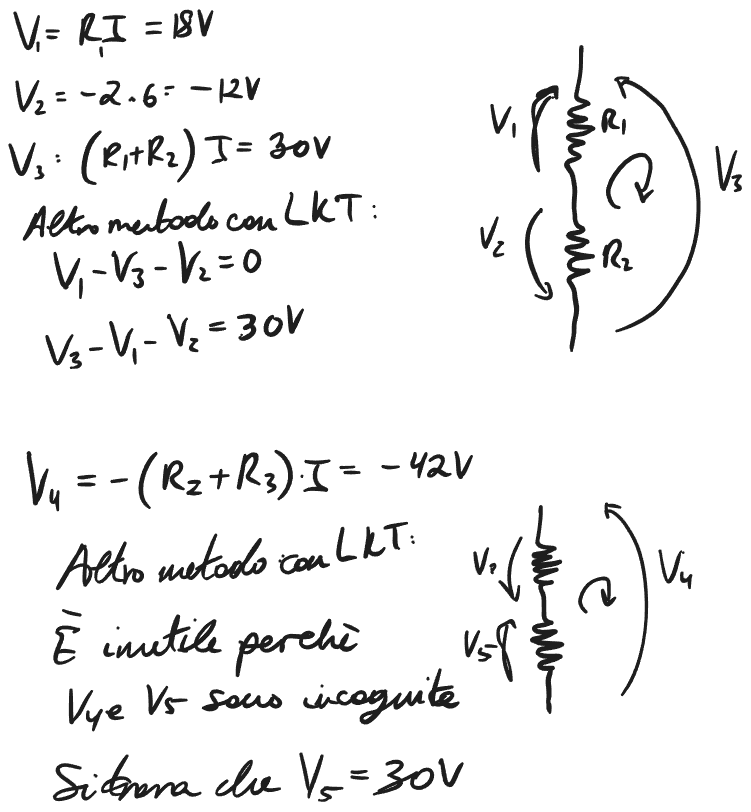 V₁ = R₁I = 18V
V₂ = -2.6 = -12V
V₃ : (R₁+R₂) I = 30V
Altro metodo con LKT:
V₁ - V₃ - V₂ = 0
V₃ - V₁ - V₂ = 30V
V₁
R₁
V₂
R₂
V₃
V₄ = -(R₂+R₃).I = -42V
Altro metodo con LKT:
È inutile perchè
V₄ e V₅ sono incognite
Si trova che V₅ = 30V
V₂
V₅
V₄